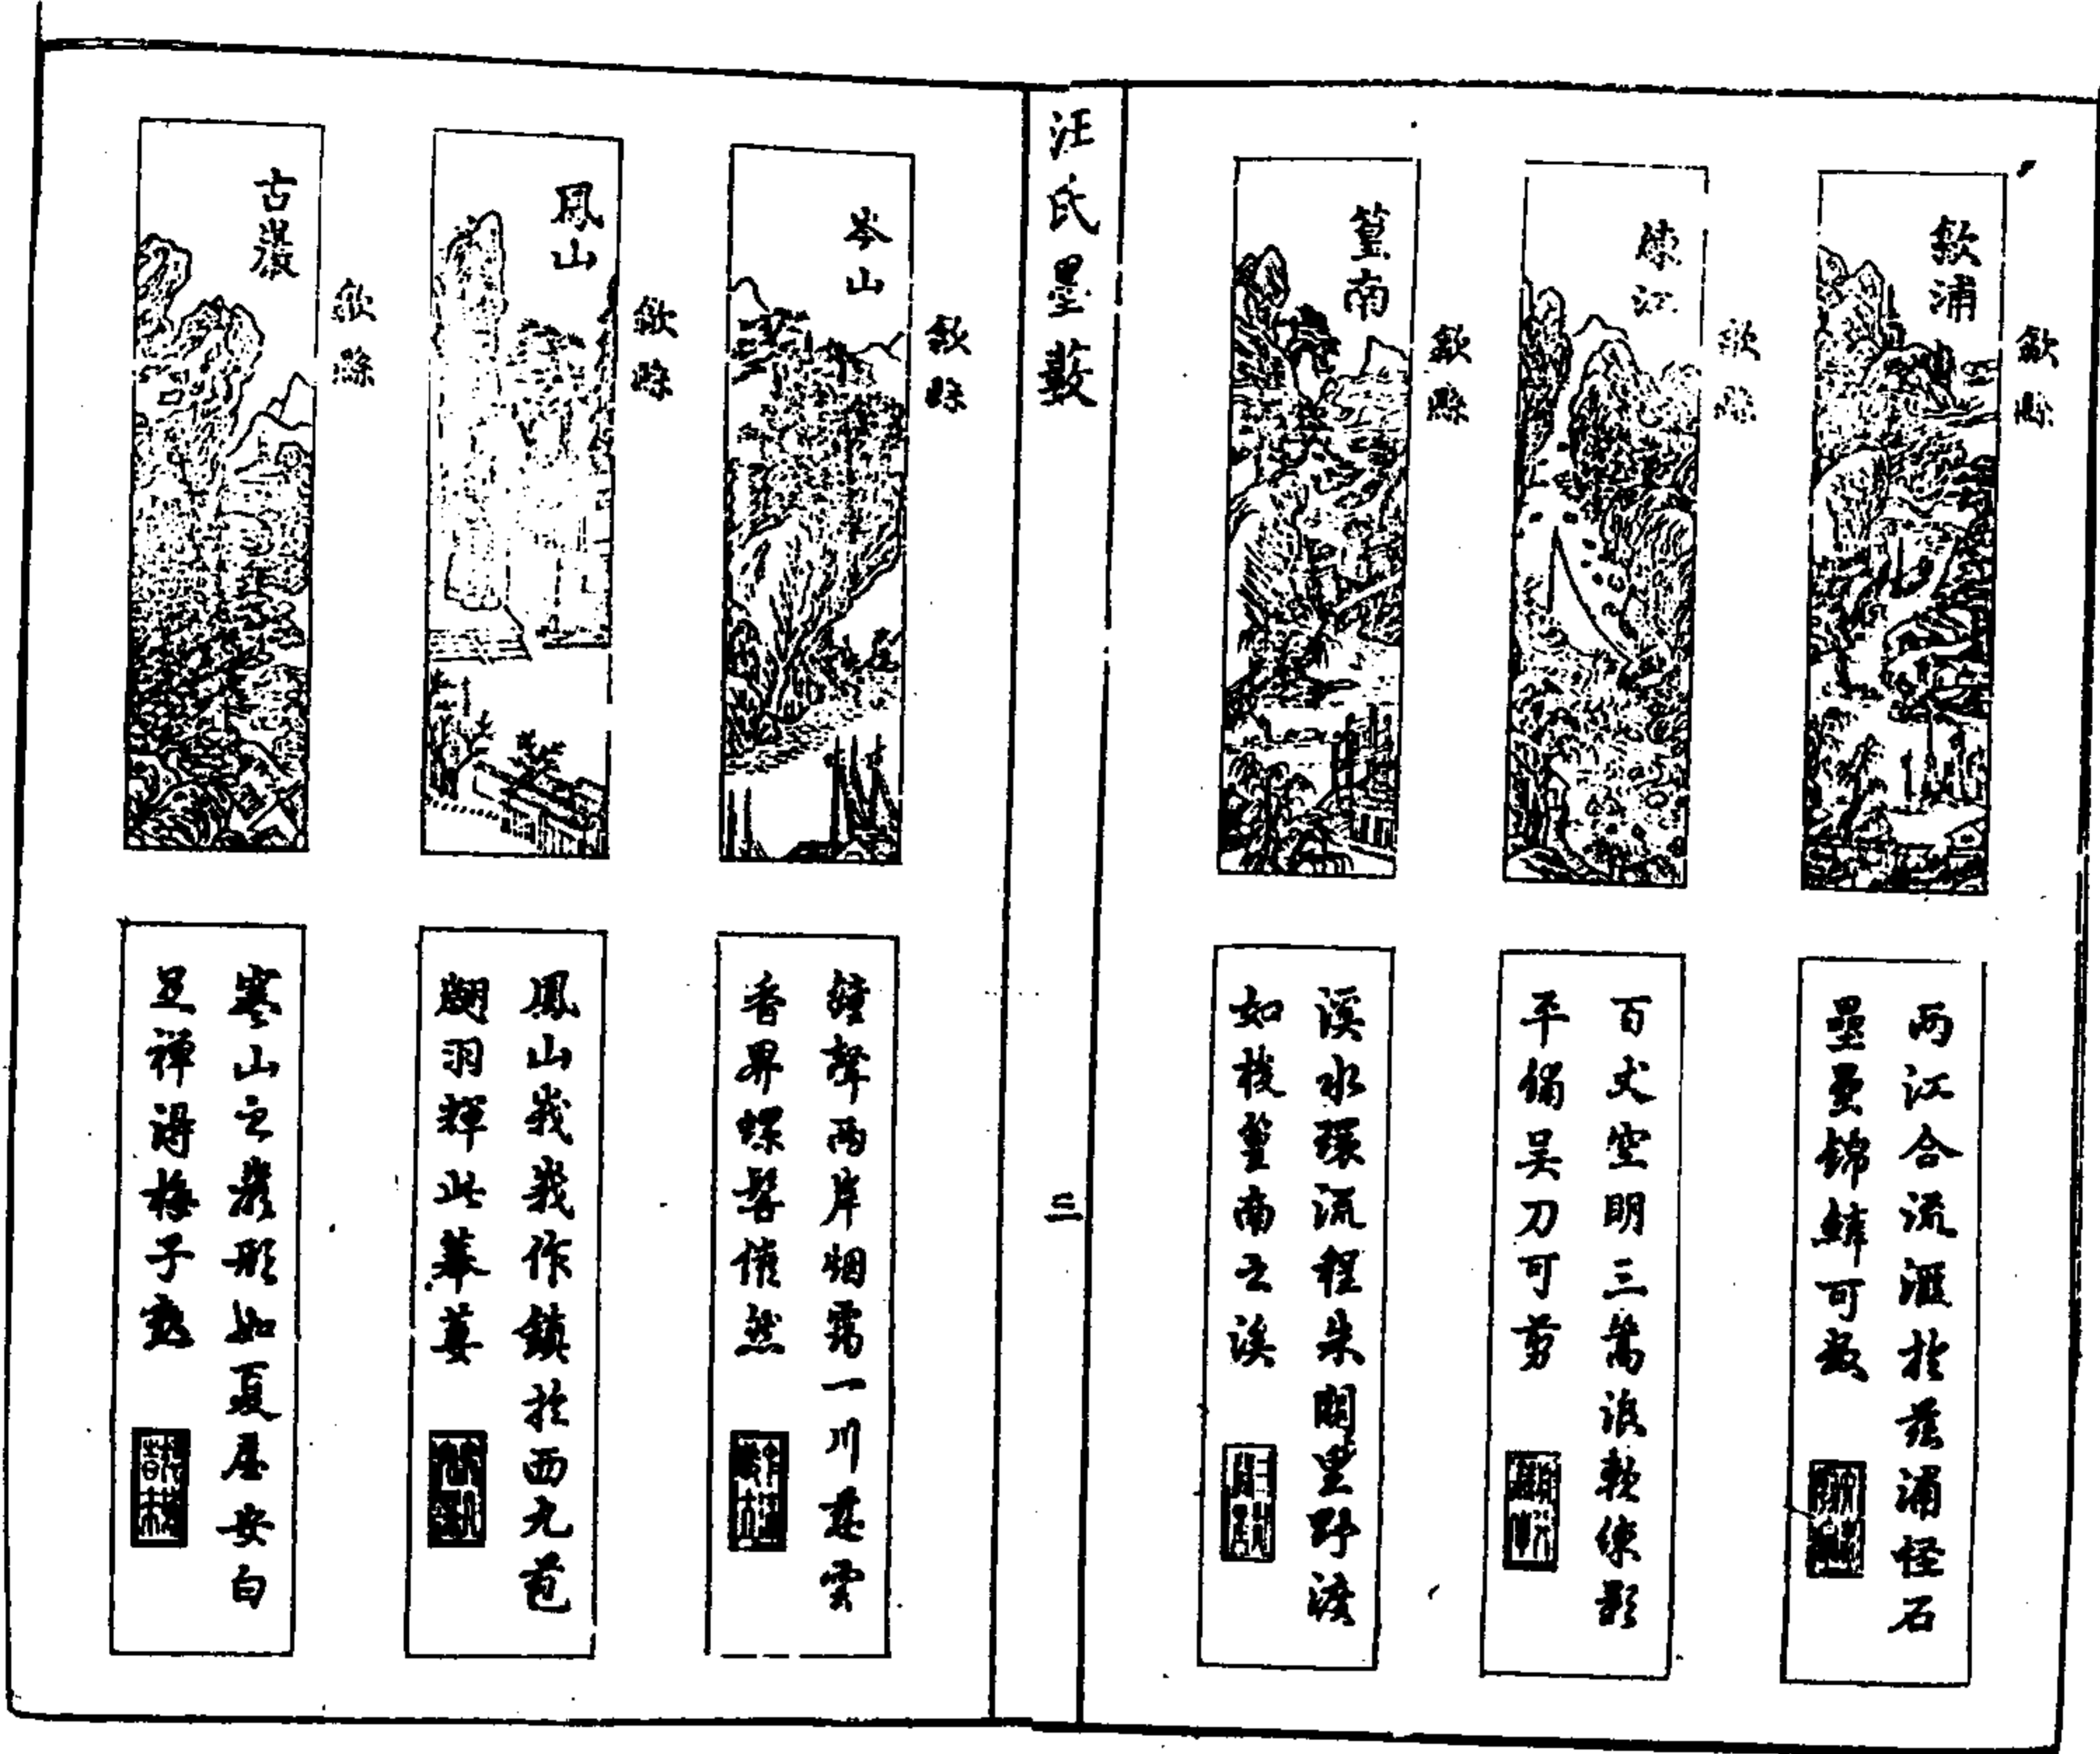 歙浦
歙縣
兩江合流滙於茲浦怪石
壘壘錦鱗可數
練江
歙縣
百丈空明三篙浪軟練影
平鋪吴刀可剪
篁南
歙縣
溪水環流程朱闕里野渡
如梭篁南之溪
汪氏墨藪
三
岑山
歙縣
鐘聲兩岸烟靄一川慈雲
香界螺髻儼然
鳳山
歙縣
鳳山峩峩作鎮於西九苞
翽羽輝此菶萋
古巖
歙縣
寒山之巖形如夏屋安白
足禪得梅子熟